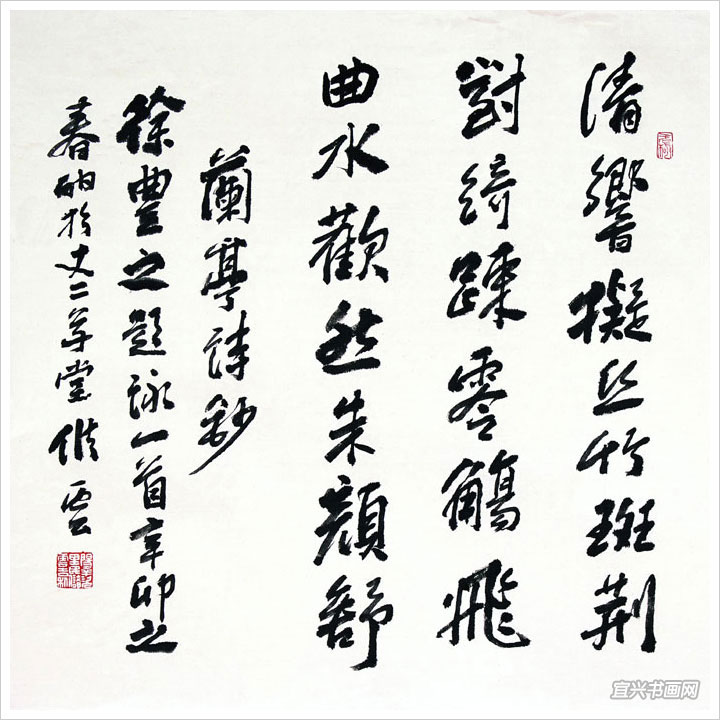 清響擬丝竹斑荆
對綺踈零觴飛
曲水歡然朱顔舒
蘭亭詩鈔
徐豐之題詠一首辛卯之
春於丈二堂雲
宜兴书画网